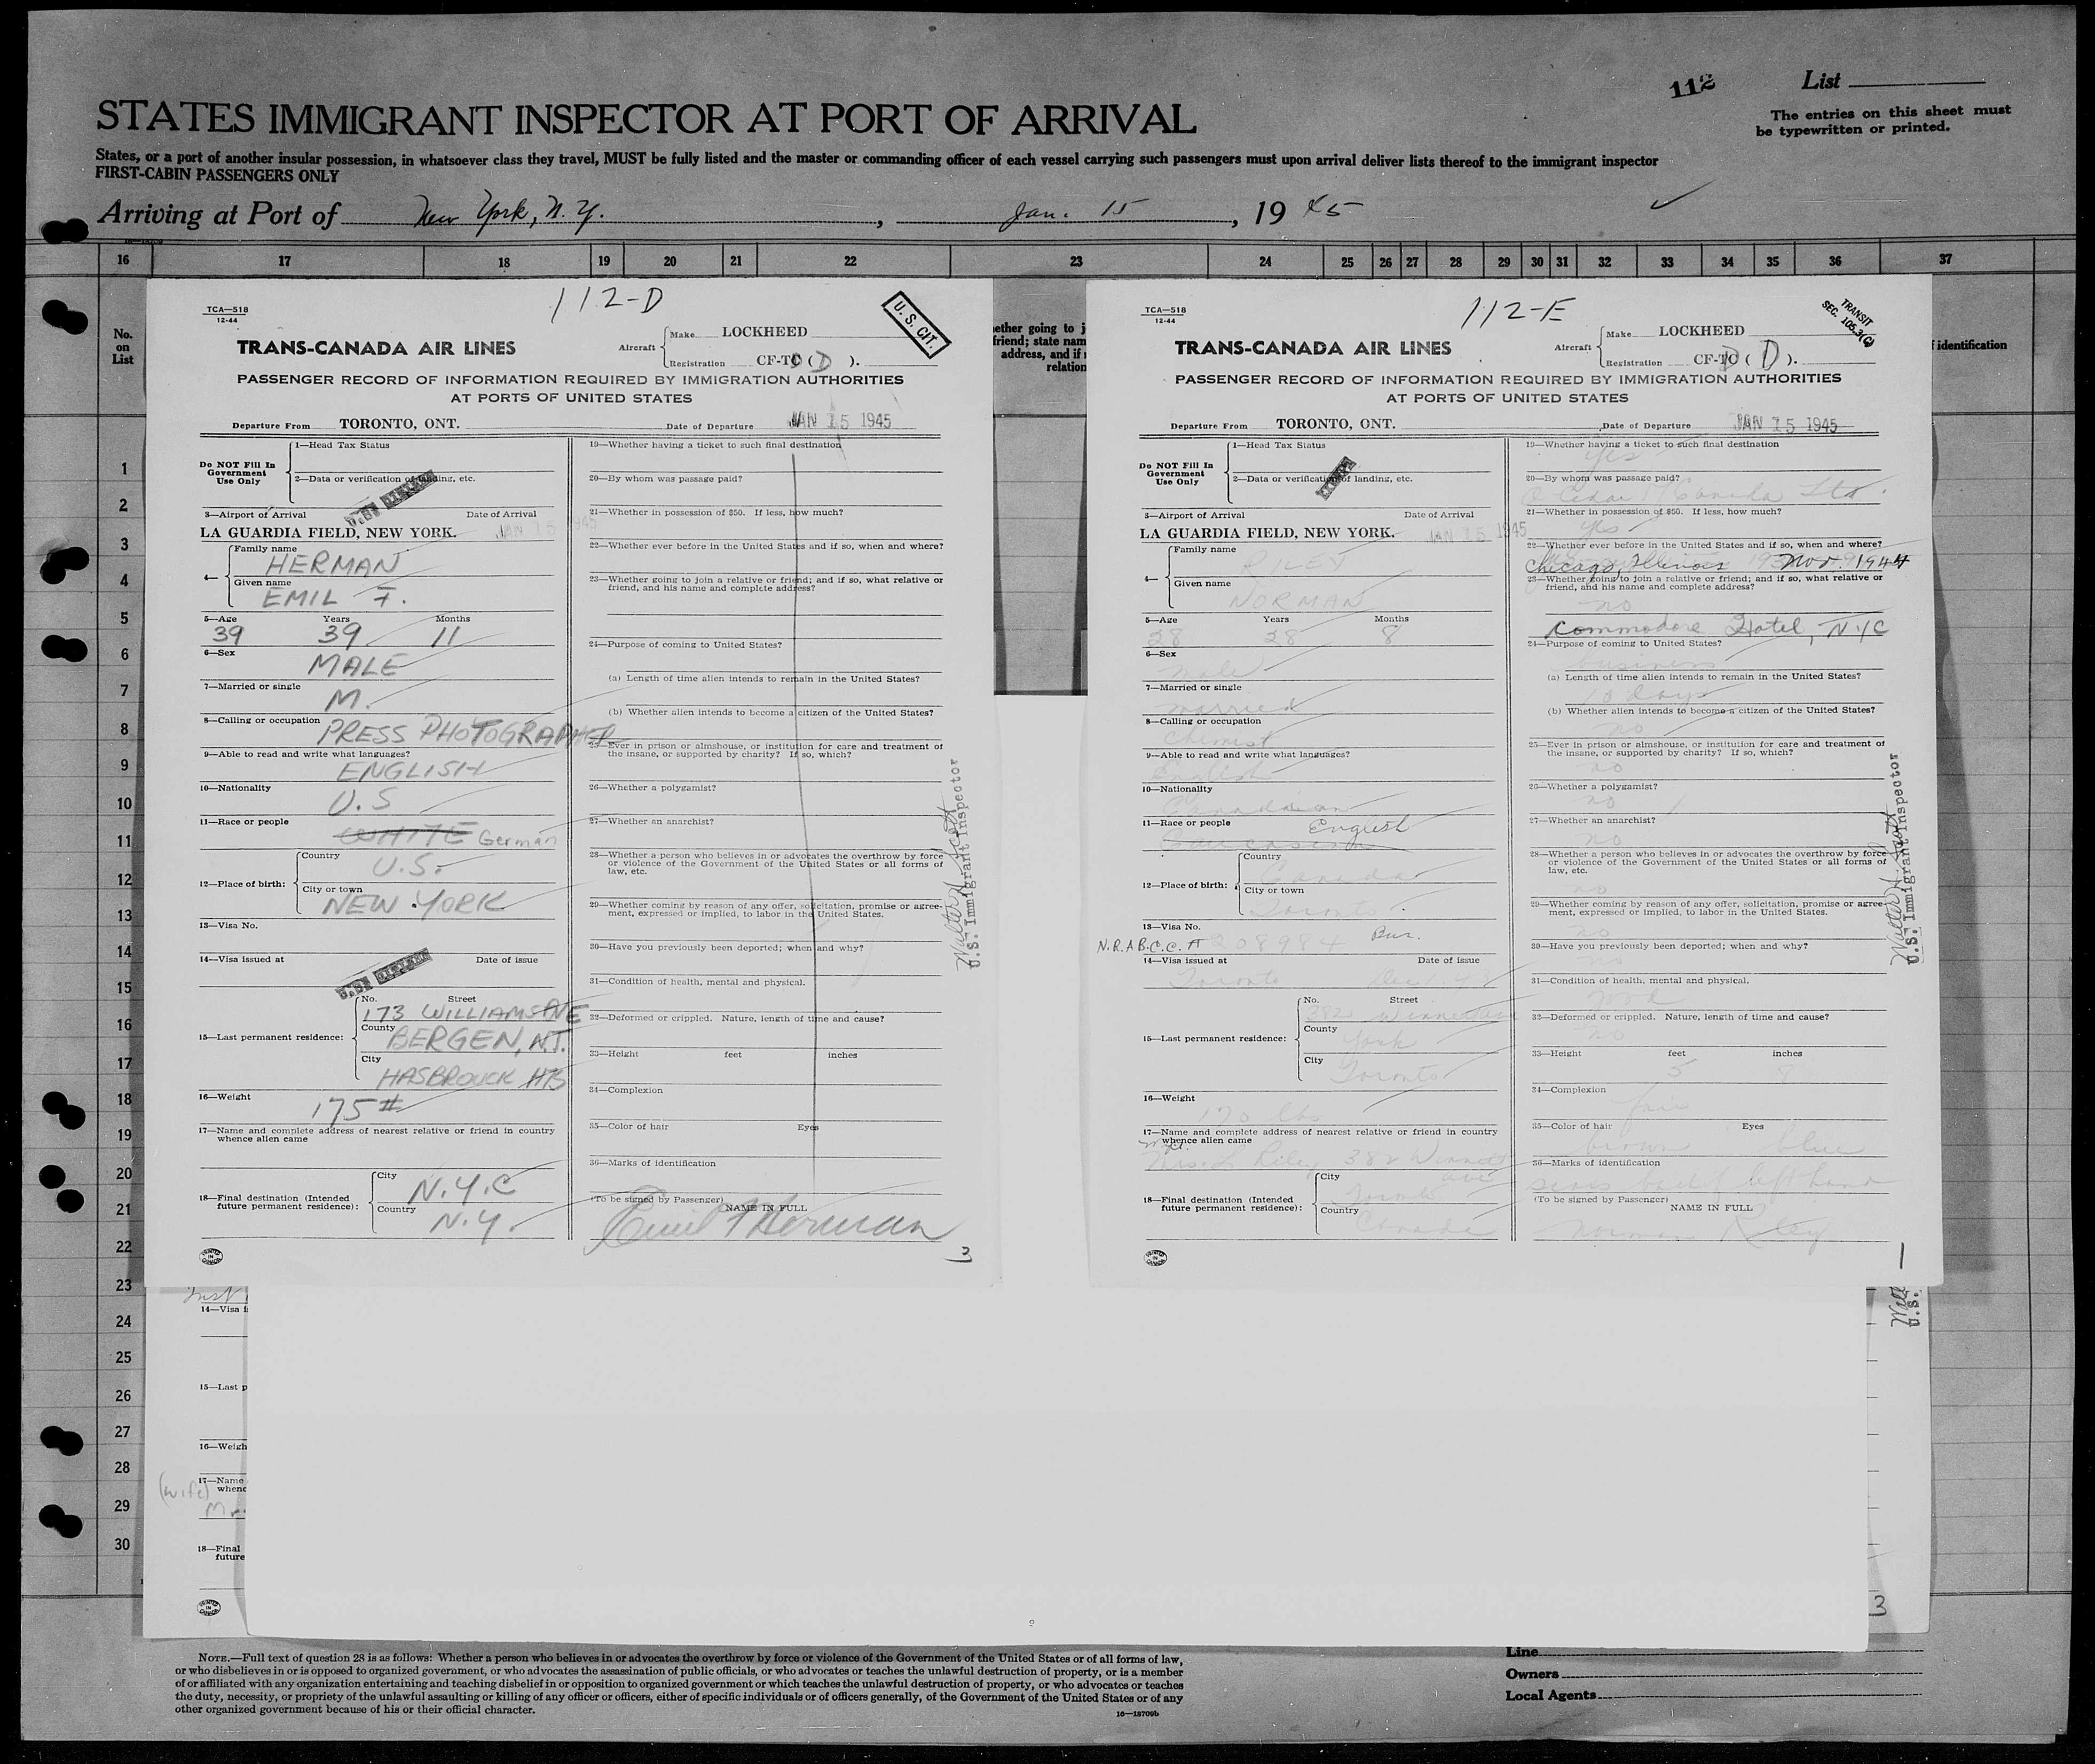 112
List
The entries on this sheet must
be typewritten or printed.
STATES IMMIGRANT INSPECTOR AT PORT OF ARRIVAL
States, or a port of another insular possession, in whatsoever class they travel, MUST be fully listed and the master or commanding officer of each vessel carrying such passengers must upon arrival deliver lists thereof to the immigrant inspector
FIRST-CABIN PASSENGERS ONLY
Arriving at Port of New York, N.Y. , Jan. 15 , 19 45
16 17 18 19 20 21 22 23 24 25 26 27 28 29 30 31 32 33 34 35 36 37
No.
on
List
1
2
3
4
5
6
7
8
9
10
11
12
13
14
15
16
17
18
19
20
21
22
23
24
25
26
27
28
29
30
112-D
TCA—518
12-44
U. S. CIT.
TRANS-CANADA AIR LINES
Aircraft
Make LOCKHEED
Registration CF-TC (D).
PASSENGER RECORD OF INFORMATION REQUIRED BY IMMIGRATION AUTHORITIES
AT PORTS OF UNITED STATES
Departure From TORONTO, ONT. Date of Departure JAN 15 1945
Do NOT Fill In
Government
Use Only
1—Head Tax Status
2—Data or verification of landing, etc.
3—Airport of Arrival Date of Arrival
LA GUARDIA FIELD, NEW YORK. JAN 15 1945
4—
Family name
HERMAN
Given name
EMIL F.
5—Age Years Months
39 39 11
6—Sex
MALE
7—Married or single
M.
8—Calling or occupation
PRESS PHOTOGRAPHER
9—Able to read and write what languages?
ENGLISH
10—Nationality
U.S
11—Race or people
WHITE German
12—Place of birth:
Country
U.S.
City or town
NEW YORK
13—Visa No.
14—Visa issued at Date of issue
15—Last permanent residence:
No. Street
173 WILLIAMS AVE
County
BERGEN, N.J.
City
HASBROUCK HTS
16—Weight
175#
17—Name and complete address of nearest relative or friend in country
whence alien came
18—Final destination (Intended
future permanent residence):
City
N.Y.C
Country
N.Y.
19—Whether having a ticket to such final destination
20—By whom was passage paid?
21—Whether in possession of $50. If less, how much?
22—Whether ever before in the United States and if so, when and where?
23—Whether going to join a relative or friend; and if so, what relative or
friend, and his name and complete address?
24—Purpose of coming to United States?
(a) Length of time alien intends to remain in the United States?
(b) Whether alien intends to become a citizen of the United States?
25—Ever in prison or almshouse, or institution for care and treatment of
the insane, or supported by charity? If so, which?
26—Whether a polygamist?
27—Whether an anarchist?
28—Whether a person who believes in or advocates the overthrow by force
or violence of the Government of the United States or all forms of
law, etc.
29—Whether coming by reason of any offer, solicitation, promise or agree-
ment, expressed or implied, to labor in the United States.
30—Have you previously been deported; when and why?
31—Condition of health, mental and physical.
32—Deformed or crippled. Nature, length of time and cause?
33—Height feet inches
34—Complexion
35—Color of hair Eyes
36—Marks of identification
(To be signed by Passenger) NAME IN FULL
Emil F Herman
3
Walter H. Scott
U.S. Immigrant Inspector
PRINTED
IN
CANADA
ether going to j
friend; state nam
address, and if
relation
f identification
112-E
TCA—518
12-44
TRANSIT
SEC. 105.3(c)
TRANS-CANADA AIR LINES
Aircraft
Make LOCKHEED
Registration CF-TC (D).
PASSENGER RECORD OF INFORMATION REQUIRED BY IMMIGRATION AUTHORITIES
AT PORTS OF UNITED STATES
Departure From TORONTO, ONT. Date of Departure JAN 15 1945
Do NOT Fill In
Government
Use Only
1—Head Tax Status
2—Data or verification of landing, etc.
3—Airport of Arrival Date of Arrival
LA GUARDIA FIELD, NEW YORK. JAN 15 1945
4—
Family name
RILEY
Given name
NORMAN
5—Age Years Months
28 28 8
6—Sex
male
7—Married or single
married
8—Calling or occupation
Chemist
9—Able to read and write what languages?
English
10—Nationality
Canadian
11—Race or people English
Caucasian
12—Place of birth:
Country
Canada
City or town
Toronto
13—Visa No.
N.R.A.B.C.C. # 208984 Bus.
14—Visa issued at Date of issue
Toronto
15—Last permanent residence:
No. Street
382 Winnett Ave
County
York
City
Toronto
16—Weight
170 lbs
17—Name and complete address of nearest relative or friend in country
whence alien came
Mrs. L. Riley 382 Winnett
ave
18—Final destination (Intended
future permanent residence):
City
Toronto
Country
Canada
19—Whether having a ticket to such final destination
yes
20—By whom was passage paid?
O-Cedar of Canada Ltd.
21—Whether in possession of $50. If less, how much?
yes
22—Whether ever before in the United States and if so, when and where?
Chicago, Illinois Nov. 1944
23—Whether going to join a relative or friend; and if so, what relative or
friend, and his name and complete address?
no
Commodore Hotel, NYC
24—Purpose of coming to United States?
business
(a) Length of time alien intends to remain in the United States?
10 days
(b) Whether alien intends to become a citizen of the United States?
no
25—Ever in prison or almshouse, or institution for care and treatment of
the insane, or supported by charity? If so, which?
no
26—Whether a polygamist?
no
27—Whether an anarchist?
no
28—Whether a person who believes in or advocates the overthrow by force
or violence of the Government of the United States or all forms of
law, etc.
no
29—Whether coming by reason of any offer, solicitation, promise or agree-
ment, expressed or implied, to labor in the United States.
no
30—Have you previously been deported; when and why?
no
31—Condition of health, mental and physical.
good
32—Deformed or crippled. Nature, length of time and cause?
no
33—Height feet inches
5 8
34—Complexion
fair
35—Color of hair Eyes
brown blue
36—Marks of identification
scars back of left hand
(To be signed by Passenger) NAME IN FULL
Norman Riley
1
Walter H. Scott
U.S. Immigrant Inspector
PRINTED
IN
CANADA
14—Visa i
15—Last p
16—Weigh
17—Name
(wife) whenc
18—Final
future
PRINTED
IN
CANADA
U.S.
3
NOTE.—Full text of question 28 is as follows: Whether a person who believes in or advocates the overthrow by force or violence of the Government of the United States or of all forms of law,
or who disbelieves in or is opposed to organized government, or who advocates the assassination of public officials, or who advocates or teaches the unlawful destruction of property, or is a member
of or affiliated with any organization entertaining and teaching disbelief in or opposition to organized government or which teaches the unlawful destruction of property, or who advocates or teaches
the duty, necessity, or propriety of the unlawful assaulting or killing of any officer or officers, either of specific individuals or of officers generally, of the Government of the United States or of any
other organized government because of his or their official character.
16—18709b
Line
Owners
Local Agents